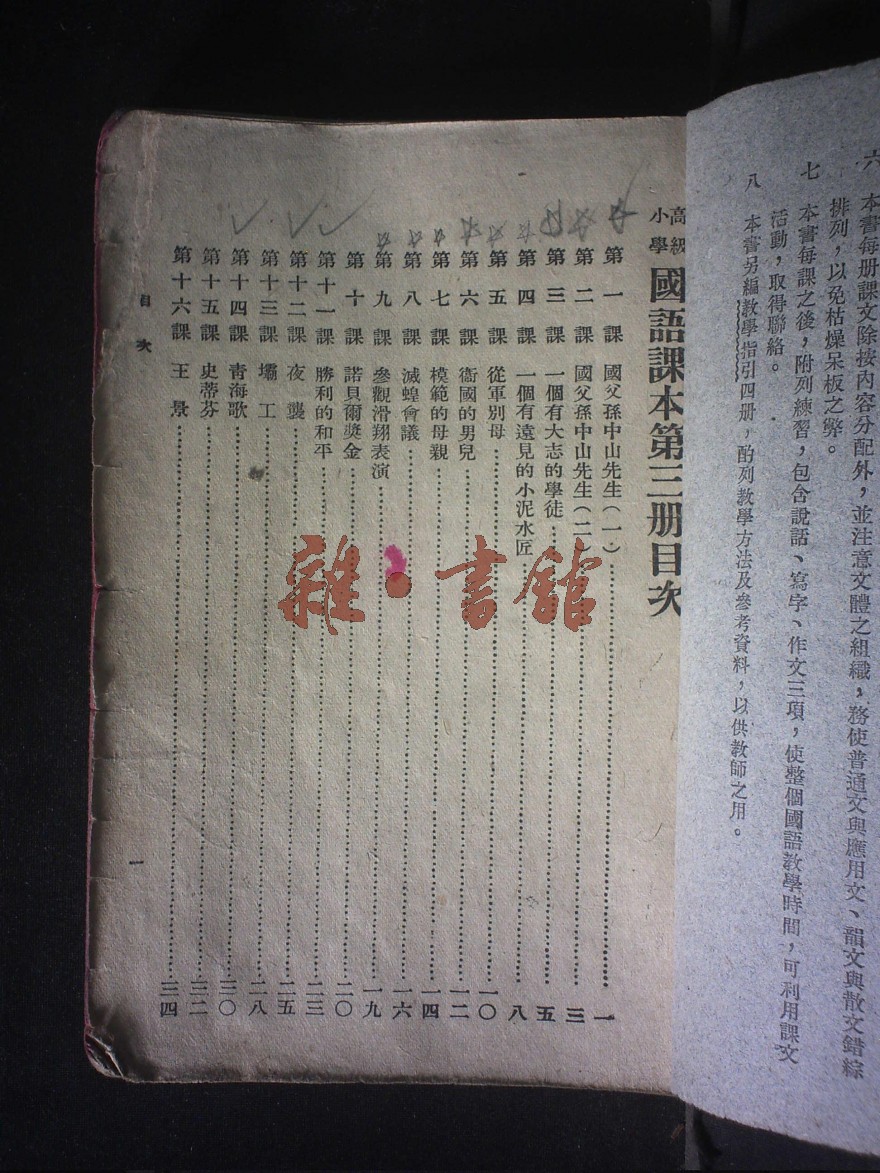 六 本書每册課文除按內容分配外，並注意文體之組織，務使普通文與應用文、韻文與散文錯綜
排列，以免枯燥呆板之弊。
七 本書每課之後，附列練習，包含說話、寫字、作文三項，使整個國語教學時間，可利用課文
活動，取得聯絡。
八 本書另編教學指引四册，酌列教學方法及參考資料，以供教師之用。
高級小學 國語課本第三册目次
第一課 國父孫中山先生（一）⋯⋯一
第二課 國父孫中山先生（二）⋯⋯三
第三課 一個有大志的學徒⋯⋯五
第四課 一個有遠見的小泥水匠⋯⋯八
第五課 從軍別母⋯⋯一〇
第六課 衞國的男兒⋯⋯一二
第七課 模範的母親⋯⋯一四
第八課 滅蝗會議⋯⋯一六
第九課 參觀滑翔表演⋯⋯一九
第十課 諾貝爾獎金⋯⋯二〇
第十一課 勝利的和平⋯⋯二三
第十二課 夜襲⋯⋯二五
第十三課 壩工⋯⋯二八
第十四課 青海歌⋯⋯三〇
第十五課 史蒂芬⋯⋯三二
第十六課 王景⋯⋯三四
目次 一
雜·書館